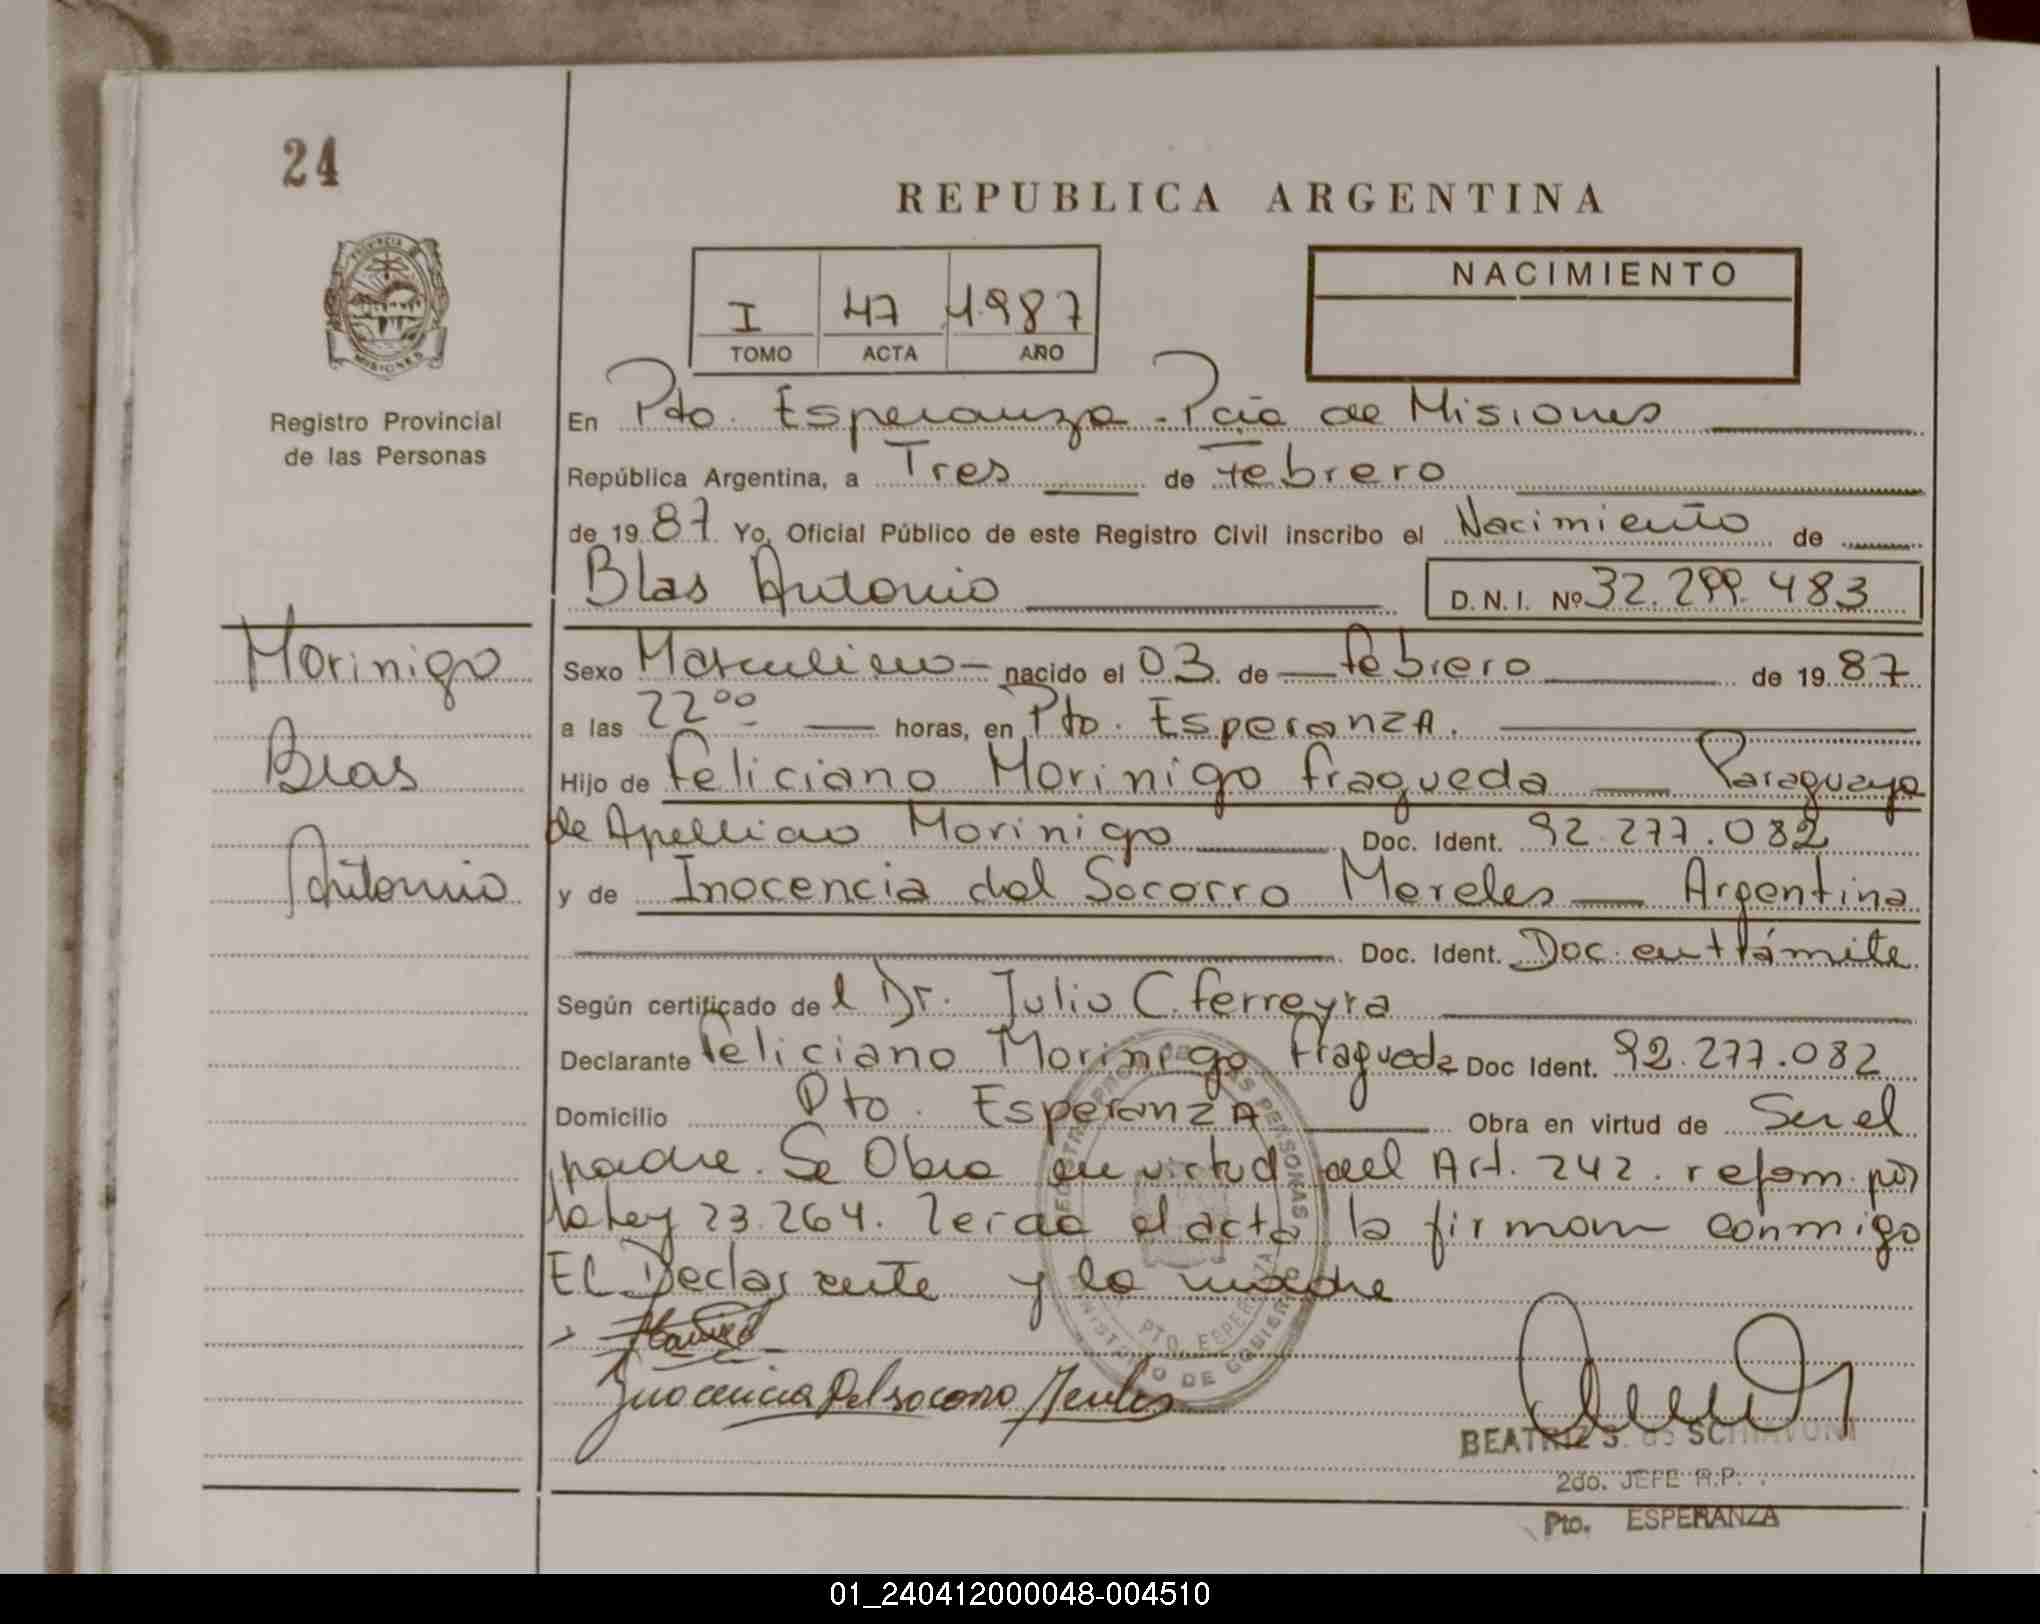 24
REPUBLICA ARGENTINA
PROVINCIA DE
MISIONES
Registro Provincial
de las Personas
I 47 1.987
TOMO ACTA AÑO
NACIMIENTO
En Pto. Esperanza - Pcia de Misiones
República Argentina, a Tres de Febrero
de 19 87 Yo, Oficial Público de este Registro Civil inscribo el Nacimiento de
Blas Antonio D. N. I. Nº 32.299.483
Morinigo
Blas
Antonio
Sexo Masculino - nacido el 03 de febrero de 19 87
a las 22 00 horas, en Pto. Esperanza.
Hijo de Feliciano Morinigo Fragueda Paraguaya
de Apellido Morinigo Doc. Ident. 92.277.082
y de Inocencia del Socorro Mereles Argentina
Doc. Ident. Doc. en trámite
Según certificado de l Dr. Julio C. Ferreyra
Declarante Feliciano Morinigo Fragueda Doc Ident. 92.277.082
Domicilio Pto. Esperanza Obra en virtud de Ser el
padre. Se Obra en virtud del Art. 242. reform. por
la Ley 23.264. Leida el acta la firman conmigo
El Declarante y la madre
Inocencia Del socorro Mereles
REGISTRO PROV. DE LAS PERSONAS
PTO. ESPERANZA
MINISTERIO DE GOBIERNO
BEATRIZ S. de SCHIAVONI
2do. JEFE R.P.
Pto. ESPERANZA
01_240412000048-004510